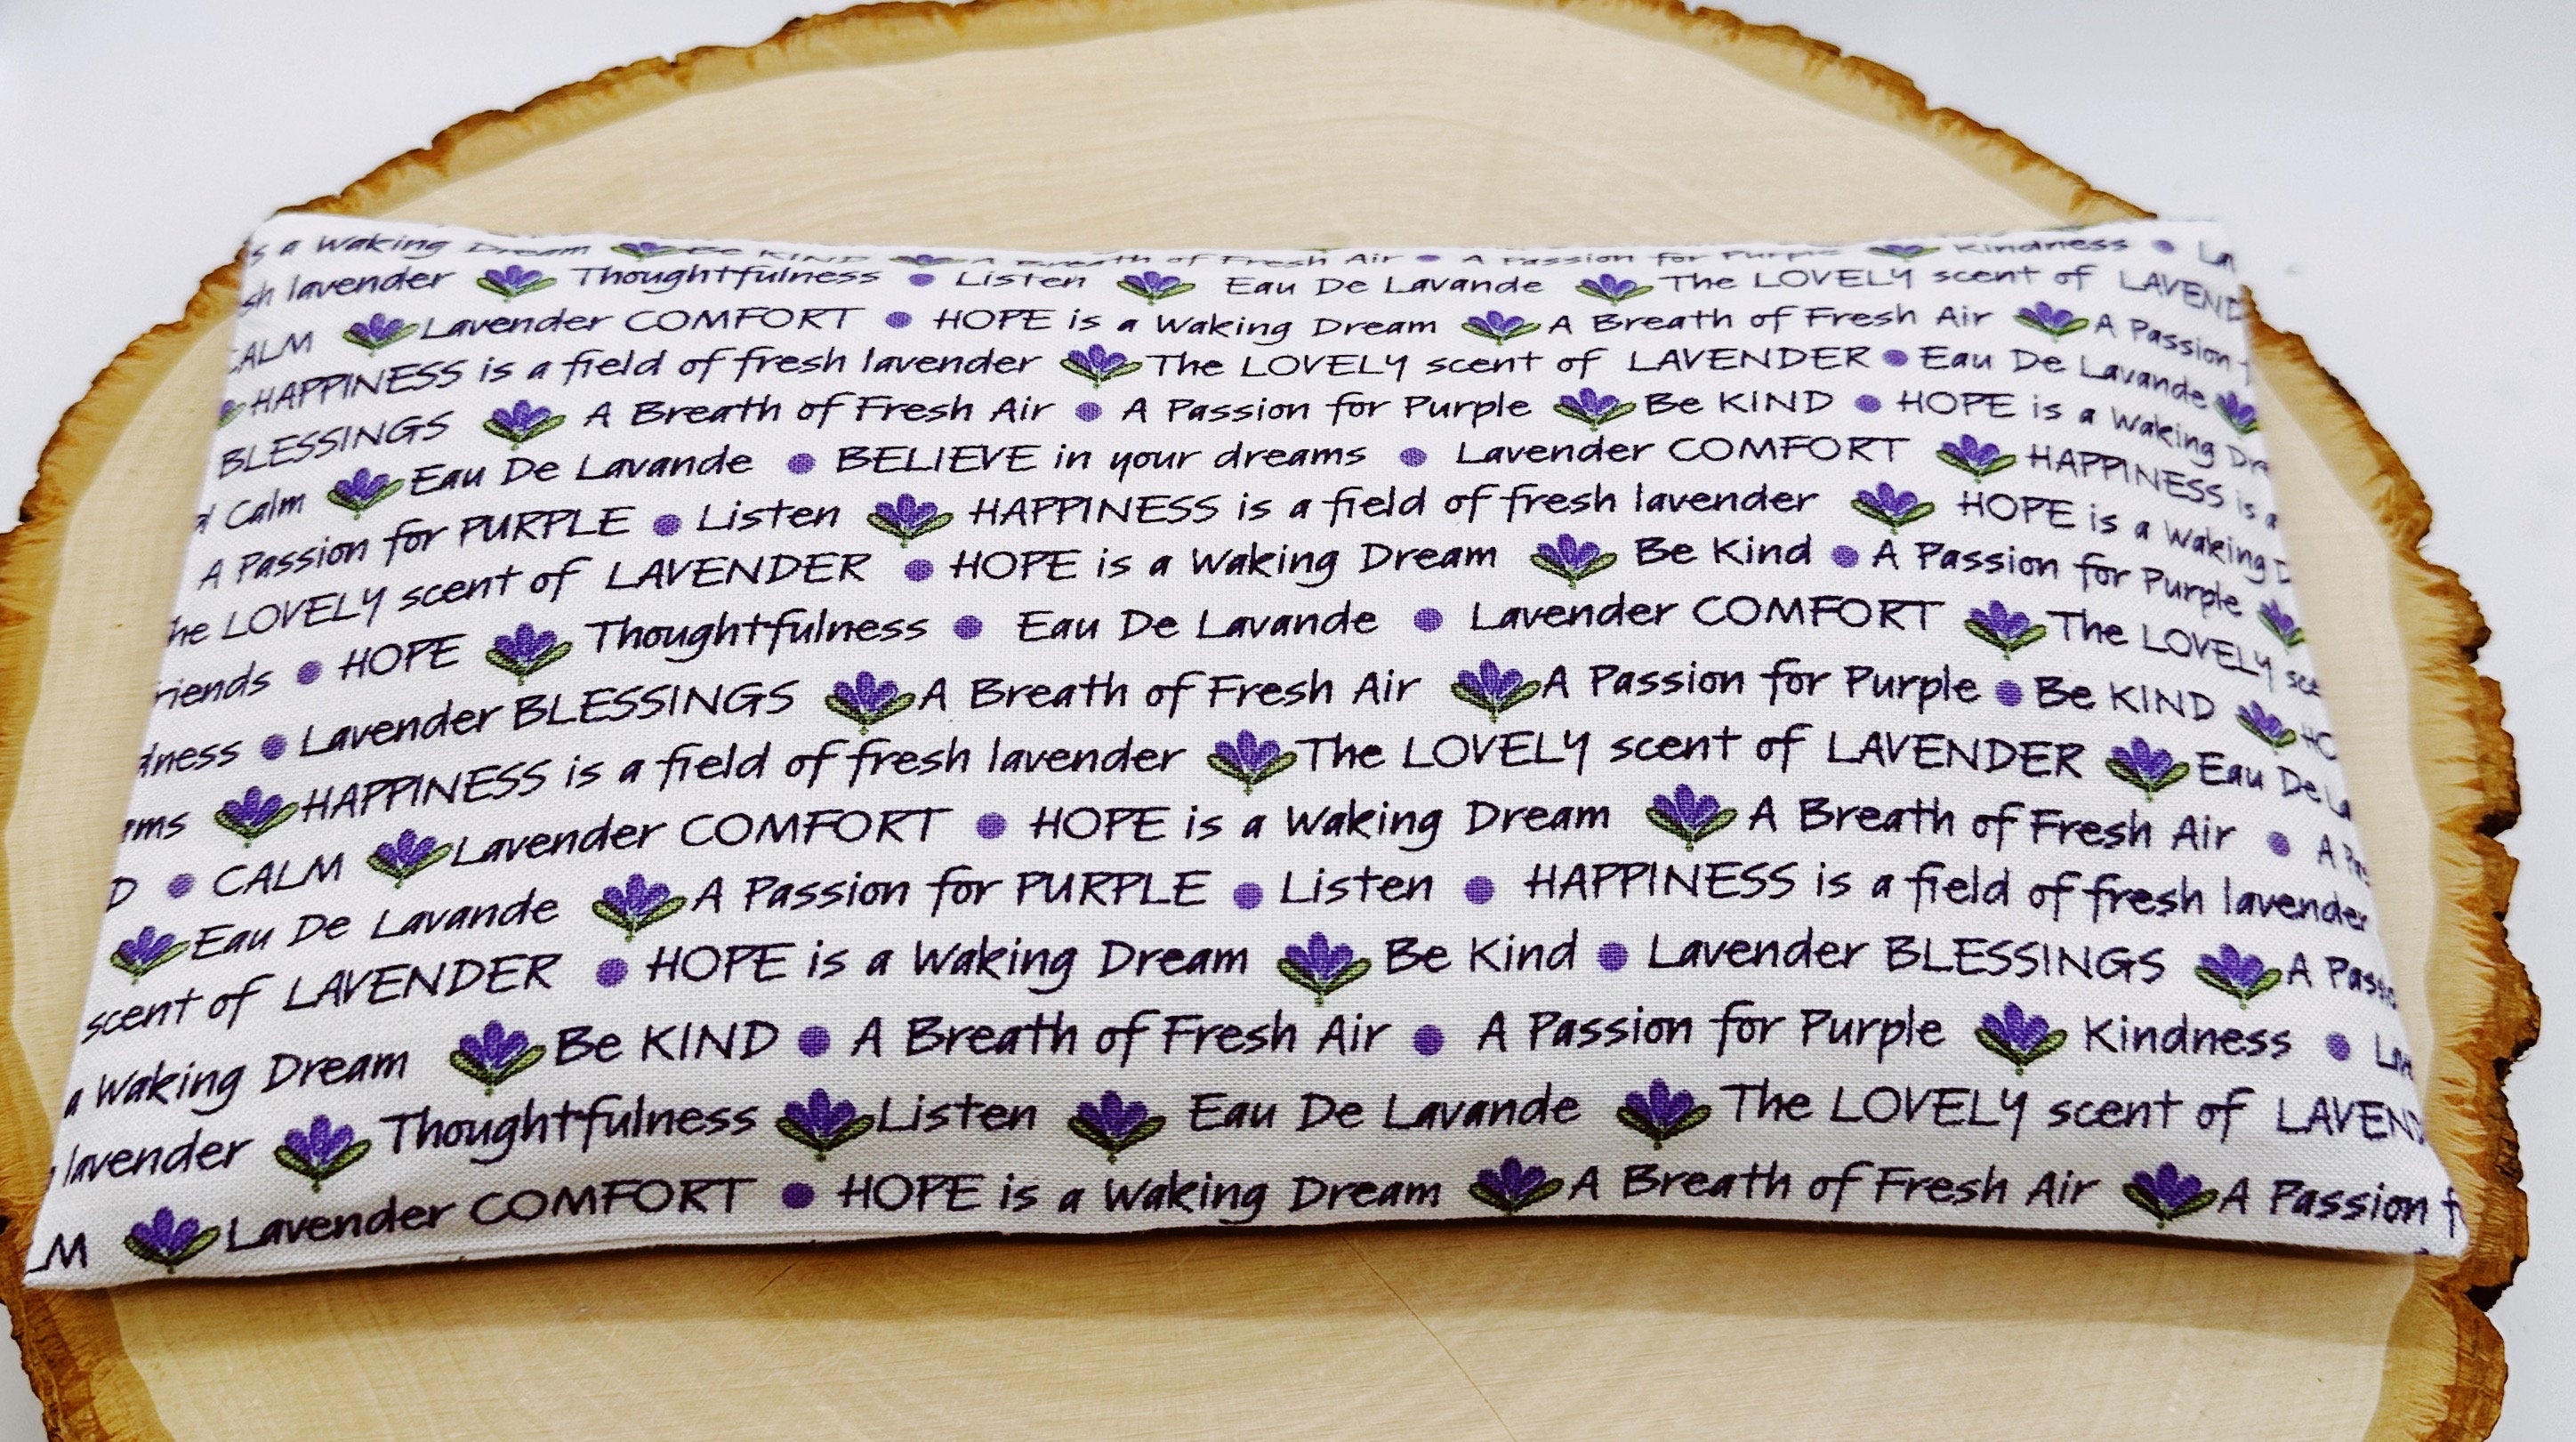 s a Waking Dream Be KIND A Breath of Fresh Air A Passion for Purple Kindness La
sh lavender Thoughtfulness Listen Eau De Lavande The LOVELY scent of LAVEND
CALM Lavender COMFORT HOPE is a Waking Dream A Breath of Fresh Air A Passion
HAPPINESS is a field of fresh lavender The LOVELY scent of LAVENDER Eau De Lavande
BLESSINGS A Breath of Fresh Air A Passion for Purple Be KIND HOPE is a Waking Dre
d Calm Eau De Lavande BELIEVE in your dreams Lavender COMFORT HAPPINESS is a
A Passion for PURPLE Listen HAPPINESS is a field of fresh lavender HOPE is a Waking D
he LOVELY scent of LAVENDER HOPE is a Waking Dream Be Kind A Passion for Purple
riends HOPE Thoughtfulness Eau De Lavande Lavender COMFORT The LOVELY sce
dness Lavender BLESSINGS A Breath of Fresh Air A Passion for Purple Be KIND HO
ams HAPPINESS is a field of fresh lavender The LOVELY scent of LAVENDER Eau De La
D CALM Lavender COMFORT HOPE is a Waking Dream A Breath of Fresh Air A Pas
Eau De Lavande A Passion for PURPLE Listen HAPPINESS is a field of fresh lavender
scent of LAVENDER HOPE is a Waking Dream Be Kind Lavender BLESSINGS A Passi
a Waking Dream Be KIND A Breath of Fresh Air A Passion for Purple Kindness Lav
lavender Thoughtfulness Listen Eau De Lavande The LOVELY scent of LAVEND
LM Lavender COMFORT HOPE is a Waking Dream A Breath of Fresh Air A Passion f